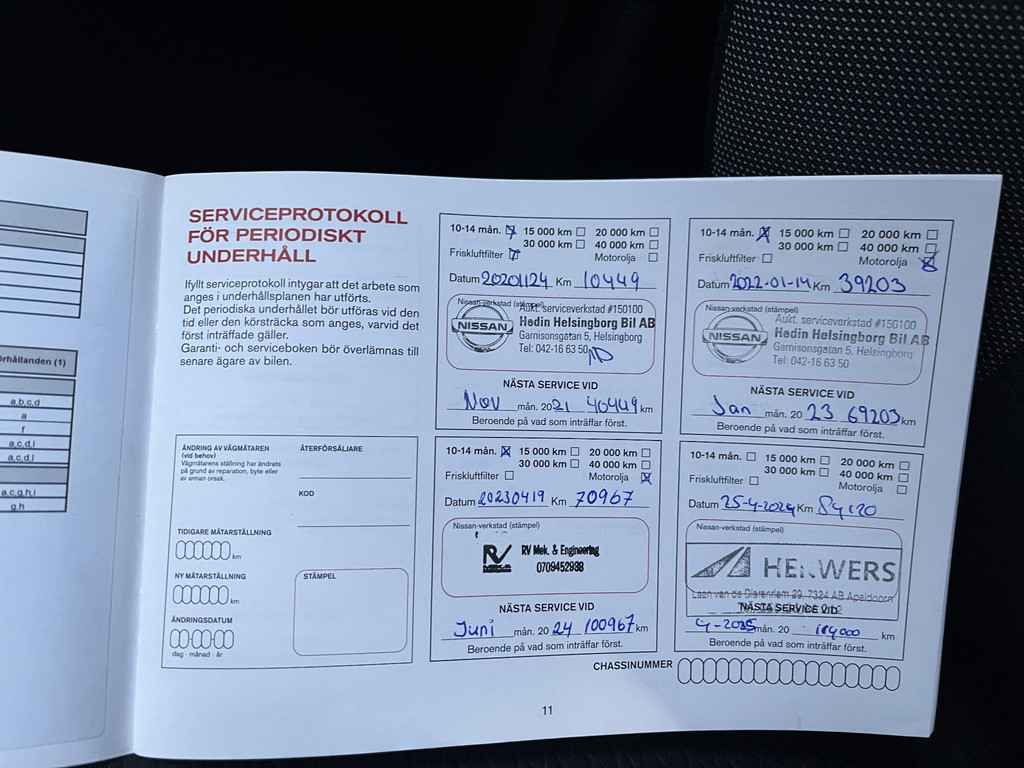 rhållanden (1)
a,b,c,d
a
f
a,c,d,i
a,c,d,i
a,c,g,h,i
g,h
SERVICEPROTOKOLL
FÖR PERIODISKT
UNDERHÅLL
Ifyllt serviceprotokoll intygar att det arbete som
anges i underhållsplanen har utförts.
Det periodiska underhållet bör utföras vid den
tid eller den körsträcka som anges, varvid det
först inträffade gäller.
Garanti- och serviceboken bör överlämnas till
senare ägare av bilen.
ÄNDRING AV VÄGMÄTAREN
(vid behov)
Vägmätarens ställning har ändrats
på grund av reparation, byte eller
av annan orsak.
ÅTERFÖRSÄLJARE
KOD
TIDIGARE MÄTARSTÄLLNING
km
NY MÄTARSTÄLLNING
km
ÄNDRINGSDATUM
dag · månad · år
STÄMPEL
10-14 mån. 15 000 km 20 000 km
30 000 km 40 000 km
Friskluftfilter Motorolja
Datum 20201124 Km 10449
Nissan-verkstad (stämpel)
Aukt. serviceverkstad #150100
NISSAN
Hedin Helsingborg Bil AB
Garnisonsgatan 5, Helsingborg
Tel: 042-16 63 50
NÄSTA SERVICE VID
Nov mån. 2021 40449 km
Beroende på vad som inträffar först.
10-14 mån. 15 000 km 20 000 km
30 000 km 40 000 km
Friskluftfilter Motorolja
Datum 2022-01-14 Km 39203
Nissan-verkstad (stämpel)
Aukt. serviceverkstad #150100
NISSAN
Hedin Helsingborg Bil AB
Garnisonsgatan 5, Helsingborg
Tel: 042-16 63 50
NÄSTA SERVICE VID
Jan mån. 20 23 69203 km
Beroende på vad som inträffar först.
10-14 mån. 15 000 km 20 000 km
30 000 km 40 000 km
Friskluftfilter Motorolja
Datum 20230419 Km 70967
Nissan-verkstad (stämpel)
RV
RV Mek. & Engineering
0709452938
NÄSTA SERVICE VID
Juni mån. 20 24 100967 km
Beroende på vad som inträffar först.
10-14 mån. 15 000 km 20 000 km
30 000 km 40 000 km
Friskluftfilter Motorolja
Datum 25-4-2024 Km 84120
Nissan-verkstad (stämpel)
Laan van de Dierenriem 29, 7324 AB Apeldoorn
NÄSTA SERVICE VID
4-2025 mån. 20 km
Beroende på vad som inträffar först.
CHASSINUMMER
11